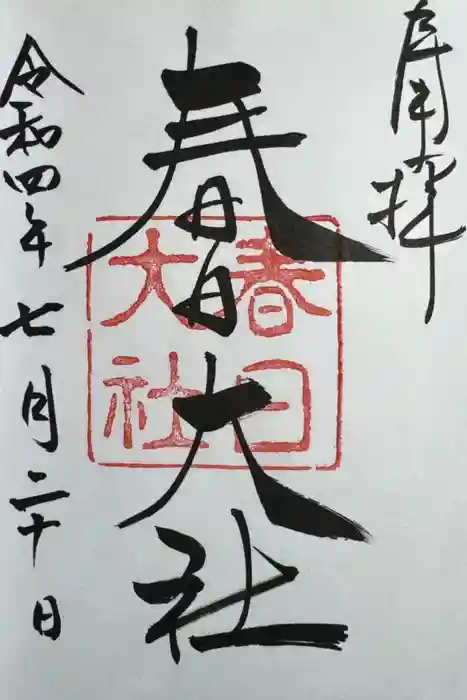 奉拝
春日大社
春日
大社
令和四年七月二十日